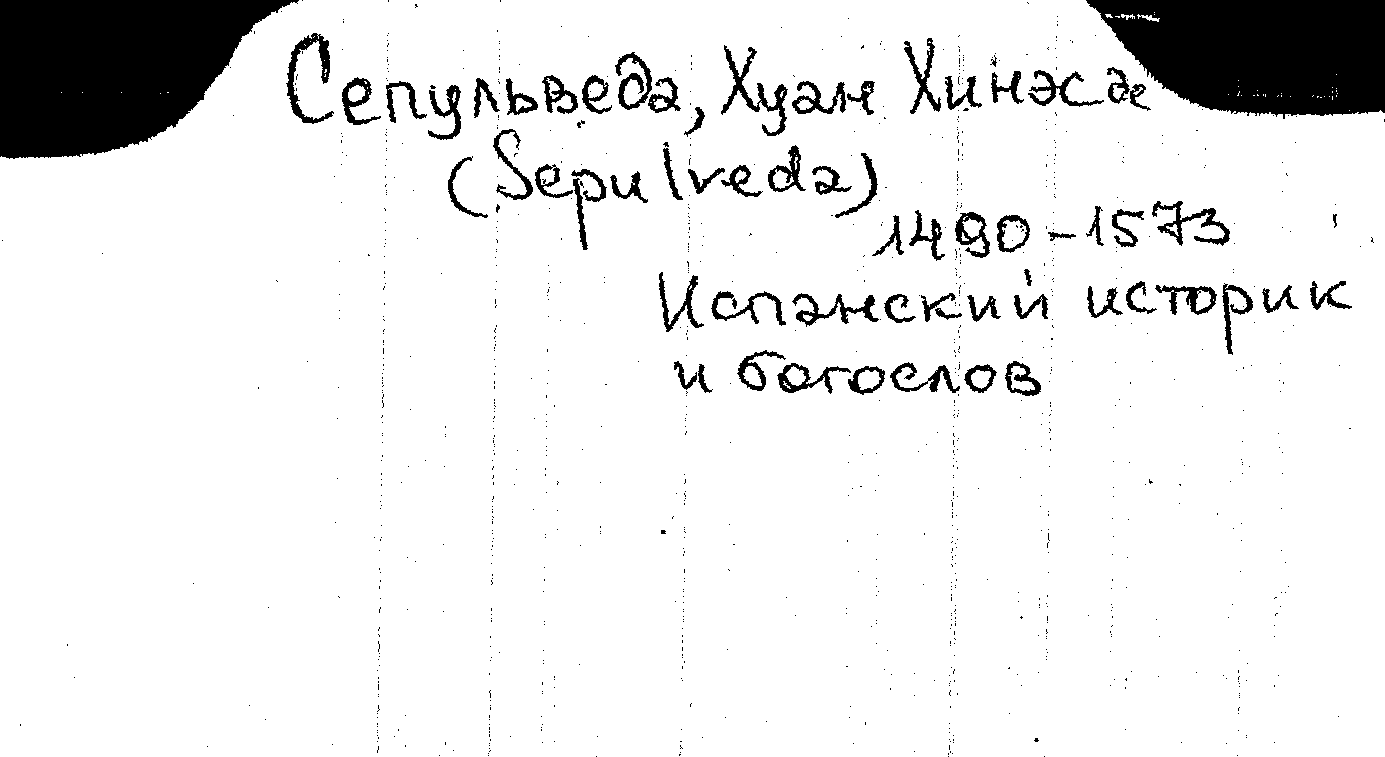 Сепульведа, Хуан Хинэс де
(Sepulveda)
1490-1573
Испанский историк
и богослов